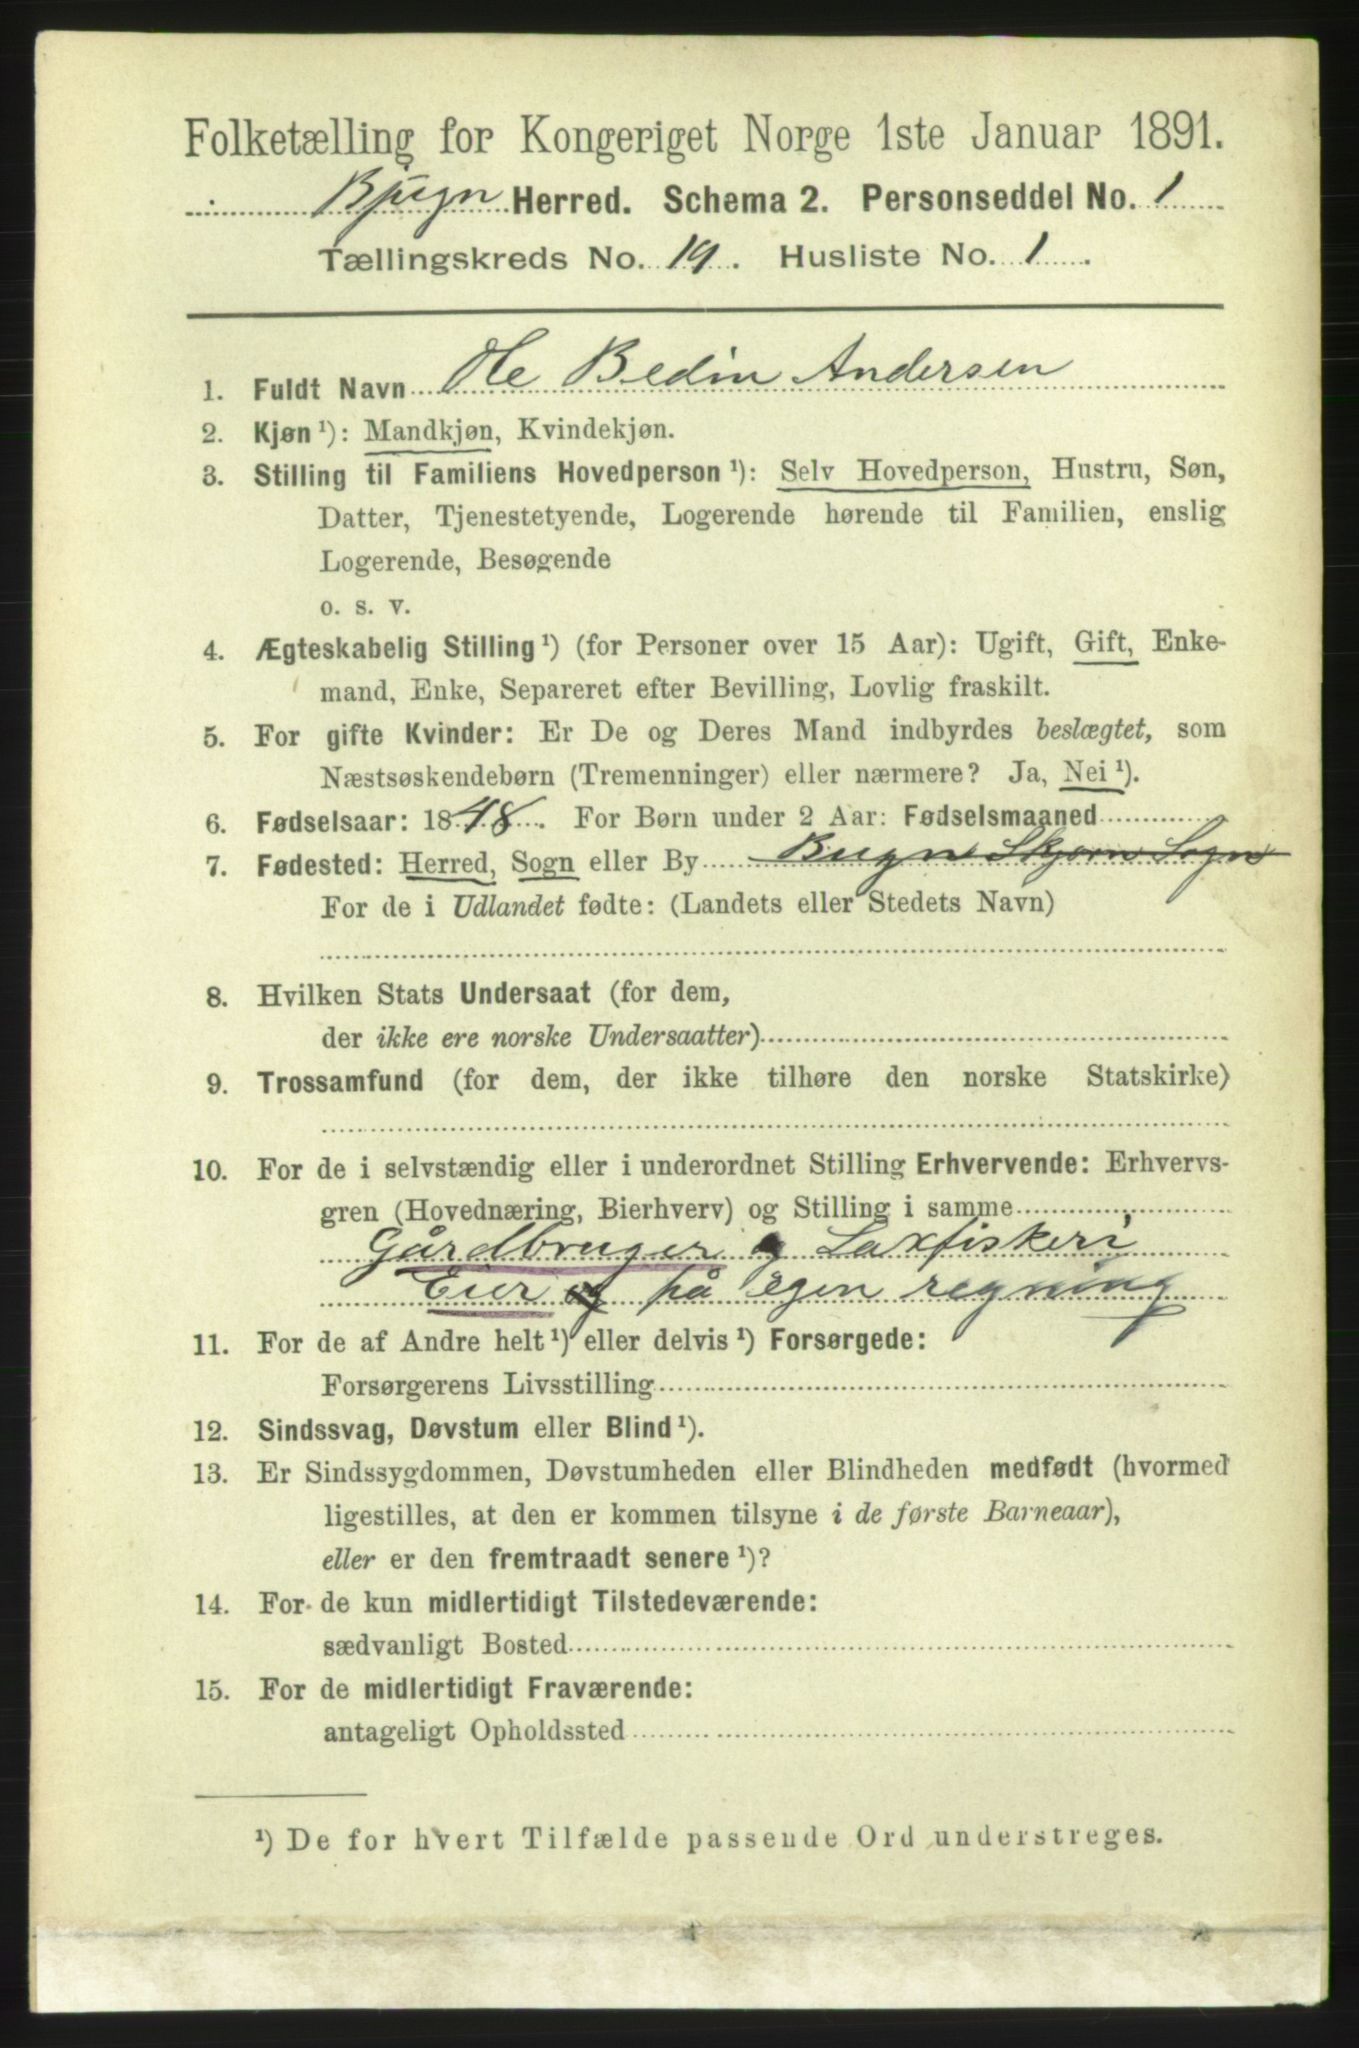 Folketælling for Kongeriget Norge 1ste Januar 1891.
Bjugn Herred. Schema 2. Personseddel No. 1
Tællingskreds No. 19. Husliste No. 1.
1. Fuldt Navn Ole Bedin Andersen
2. Kjøn ¹): Mandkjøn, Kvindekjøn.
3. Stilling til Familiens Hovedperson ¹): Selv Hovedperson, Hustru, Søn,
Datter, Tjenestetyende, Logerende hørende til Familien, enslig
Logerende, Besøgende
o. s. v.
4. Ægteskabelig Stilling ¹) (for Personer over 15 Aar): Ugift, Gift, Enke-
mand, Enke, Separeret efter Bevilling, Lovlig fraskilt.
5. For gifte Kvinder: Er De og Deres Mand indbyrdes beslægtet, som
Næstsøskendebørn (Tremenninger) eller nærmere? Ja, Nei ¹).
6. Fødselsaar: 1848. For Børn under 2 Aar: Fødselsmaaned
7. Fødested: Herred, Sogn eller By Bugn Skjørn Sogn
For de i Udlandet fødte: (Landets eller Stedets Navn)
8. Hvilken Stats Undersaat (for dem,
der ikke ere norske Undersaatter)
9. Trossamfund (for dem, der ikke tilhøre den norske Statskirke)
10. For de i selvstændig eller i underordnet Stilling Erhvervende: Erhvervs-
gren (Hovednæring, Bierhverv) og Stilling i samme
Gårdbruger og Laxfiskeri
Eier og på egen regning
11. For de af Andre helt ¹) eller delvis ¹) Forsørgede:
Forsørgerens Livsstilling
12. Sindssvag, Døvstum eller Blind ¹).
13. Er Sindssygdommen, Døvstumheden eller Blindheden medfødt (hvormed
ligestilles, at den er kommen tilsyne i de første Barneaar),
eller er den fremtraadt senere ¹)?
14. For de kun midlertidigt Tilstedeværende:
sædvanligt Bosted
15. For de midlertidigt Fraværende:
antageligt Opholdssted
¹) De for hvert Tilfælde passende Ord understreges.